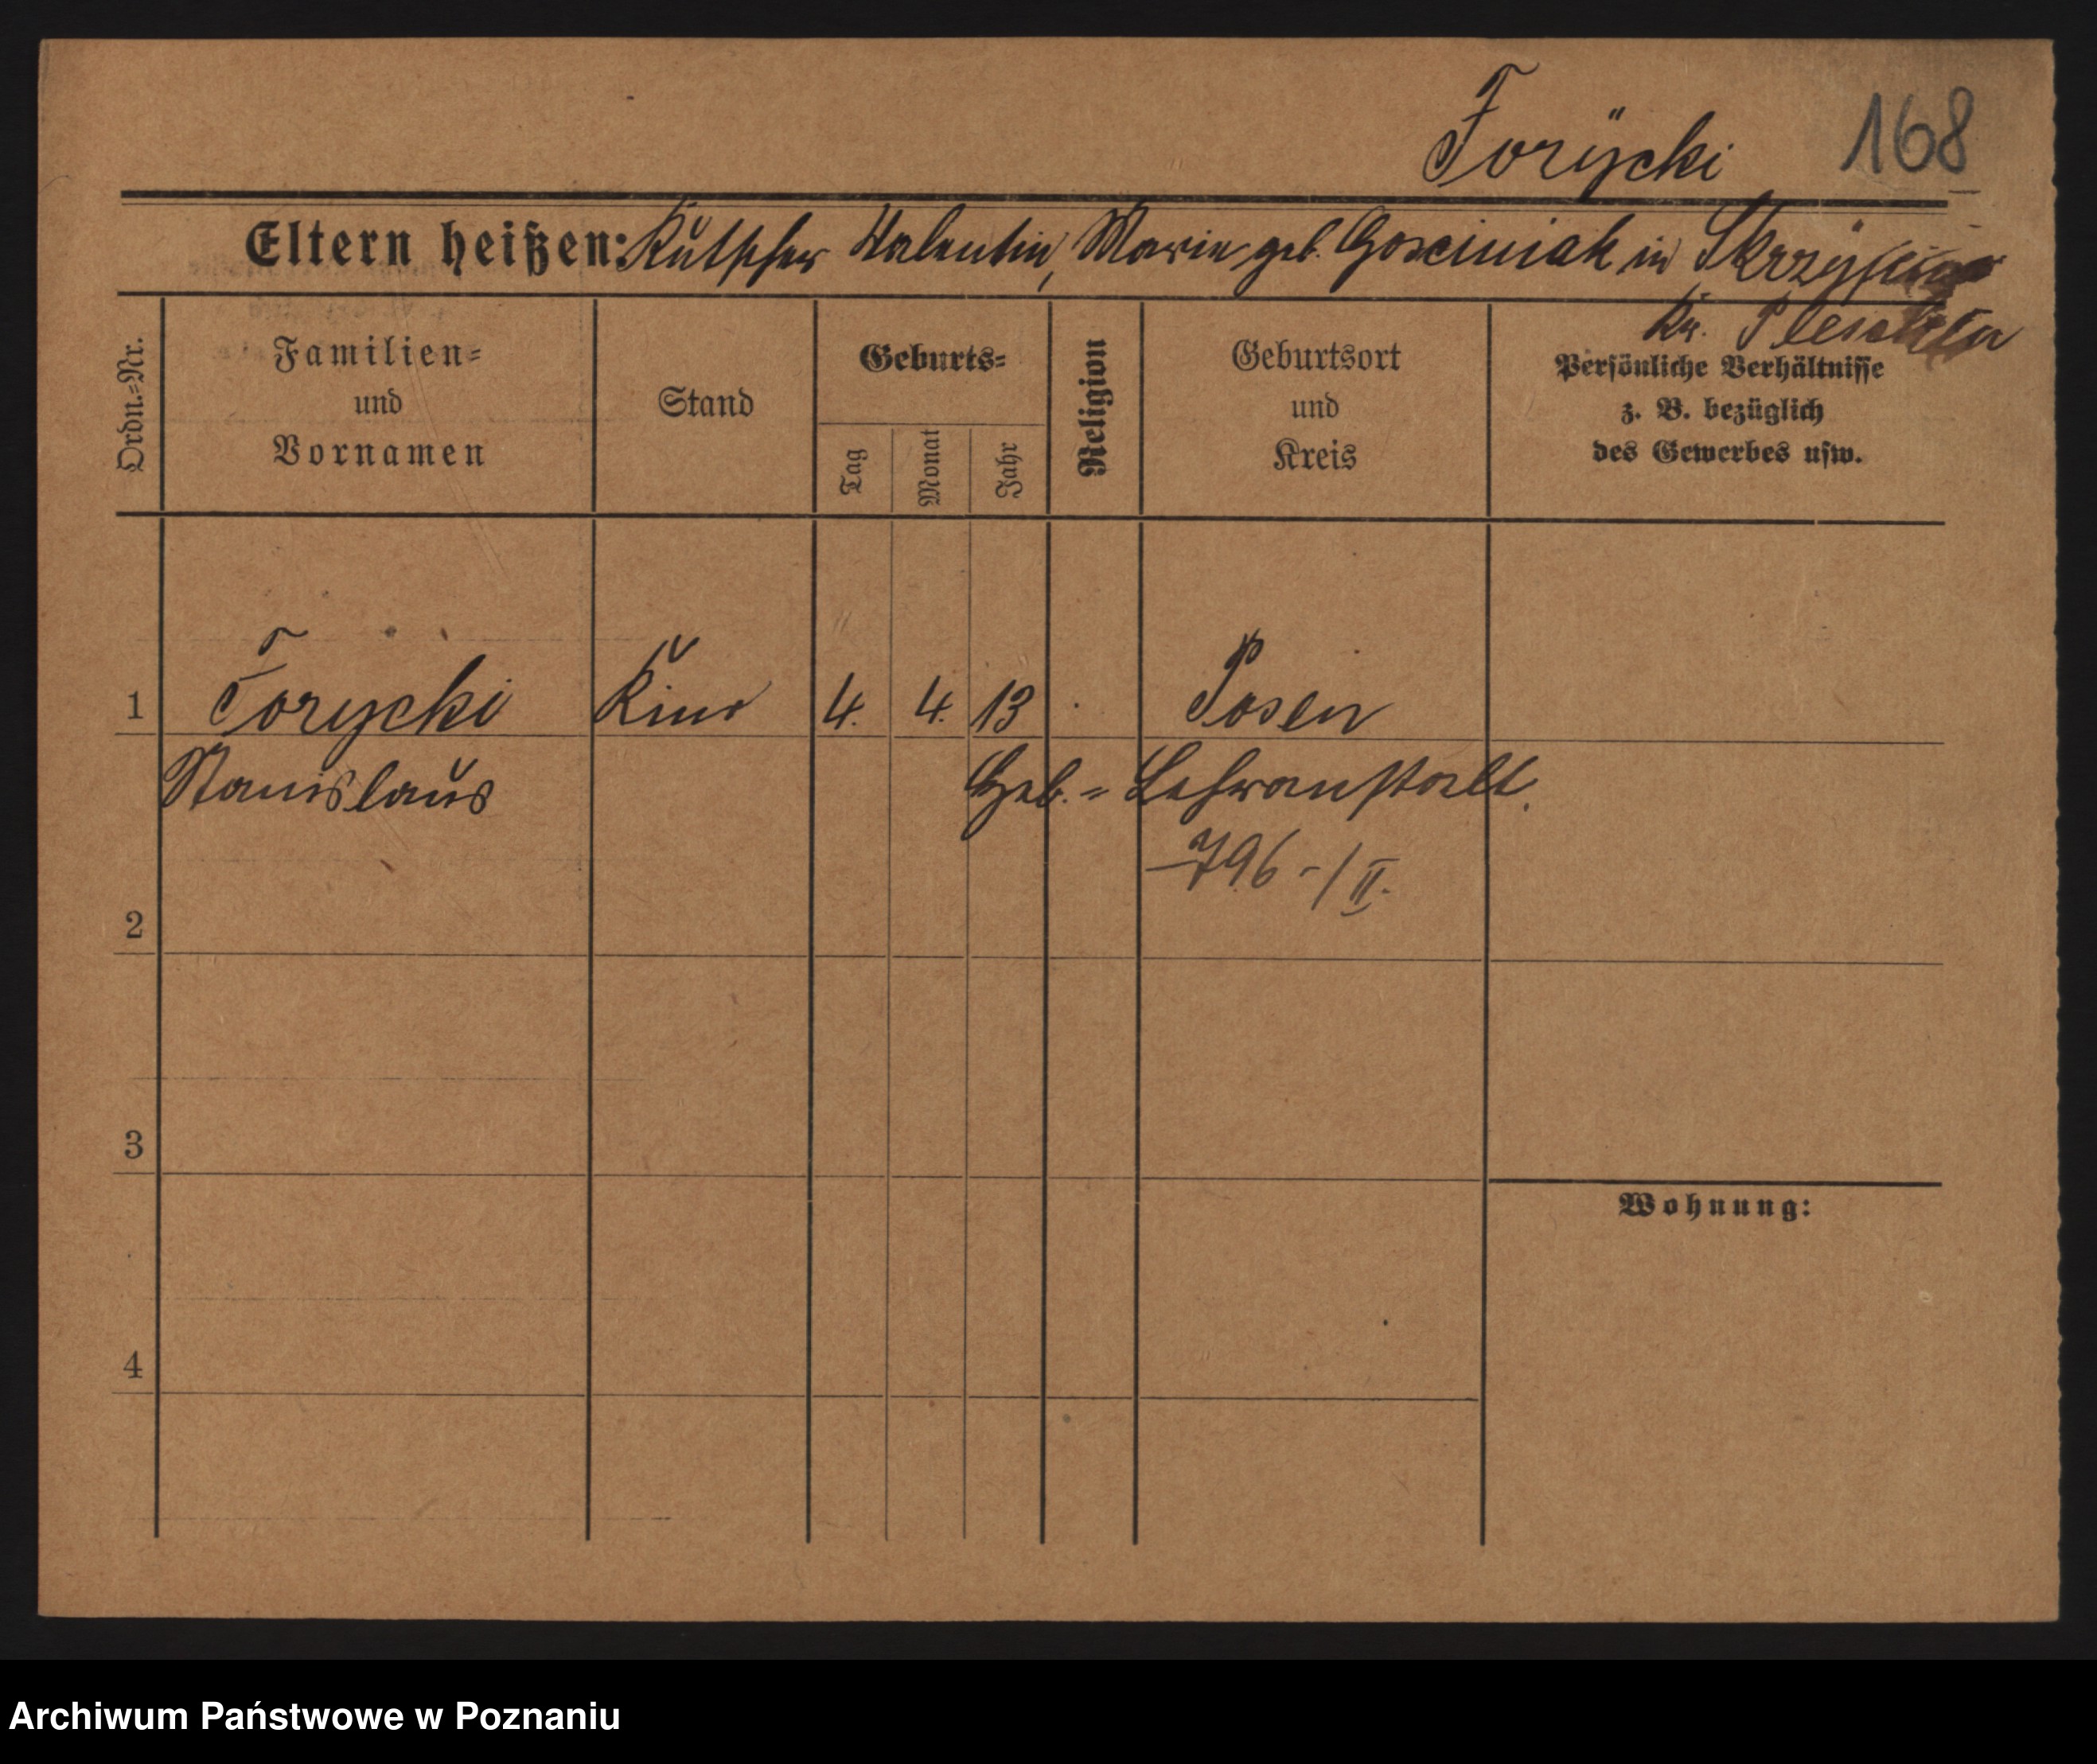 Forÿcki 168
Eltern heißen: Kutscher Valentin, Marie geb. Gosciniak in
Kr. Pleschen
Ordn.=Nr.
Familien=
und
Vornamen
Stand
Geburts=
Tag
Monat
Jahr
Religion
Geburtsort
und
Kreis
Persönliche Verhältnisse
z. B. bezüglich
des Gewerbes usw.
1 Forycki Kind 4. 4. 13 Posen
Stanislaus Heb.= Lehranstalt.
–796–/II.
2
3
Wohnung:
4
Archiwum Państwowe w Poznaniu